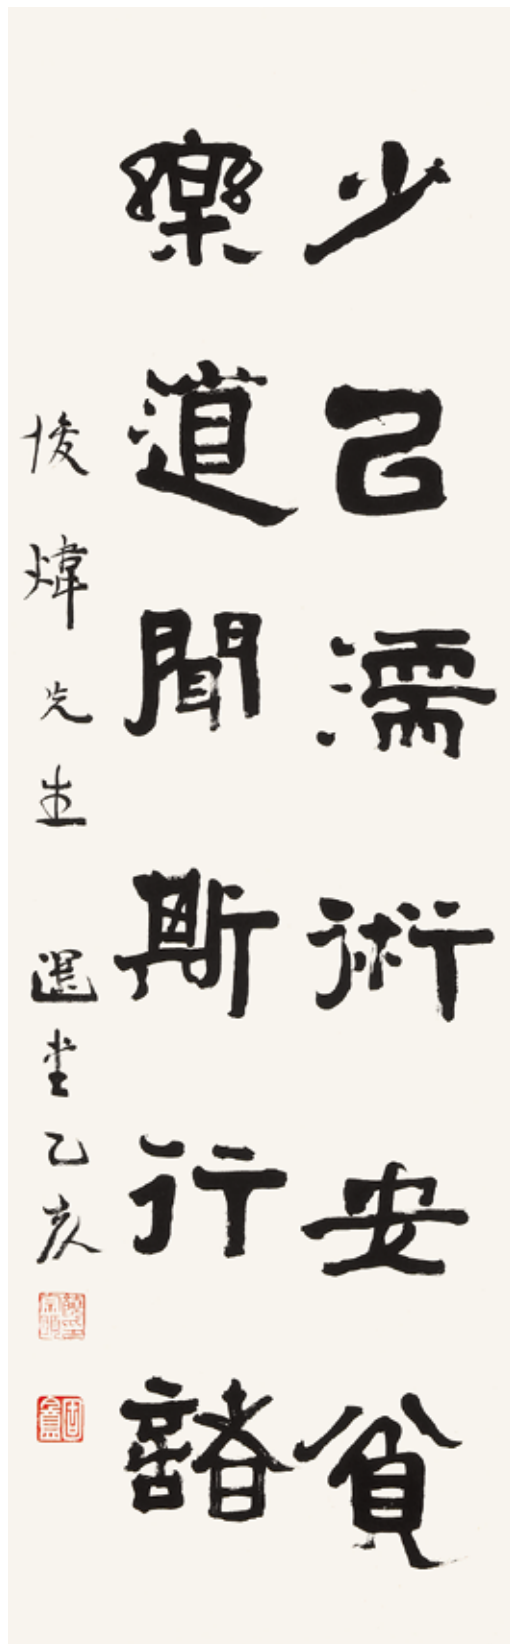 少已濡術安貧
樂道聞斯行諸
俊煒先生 選堂乙亥